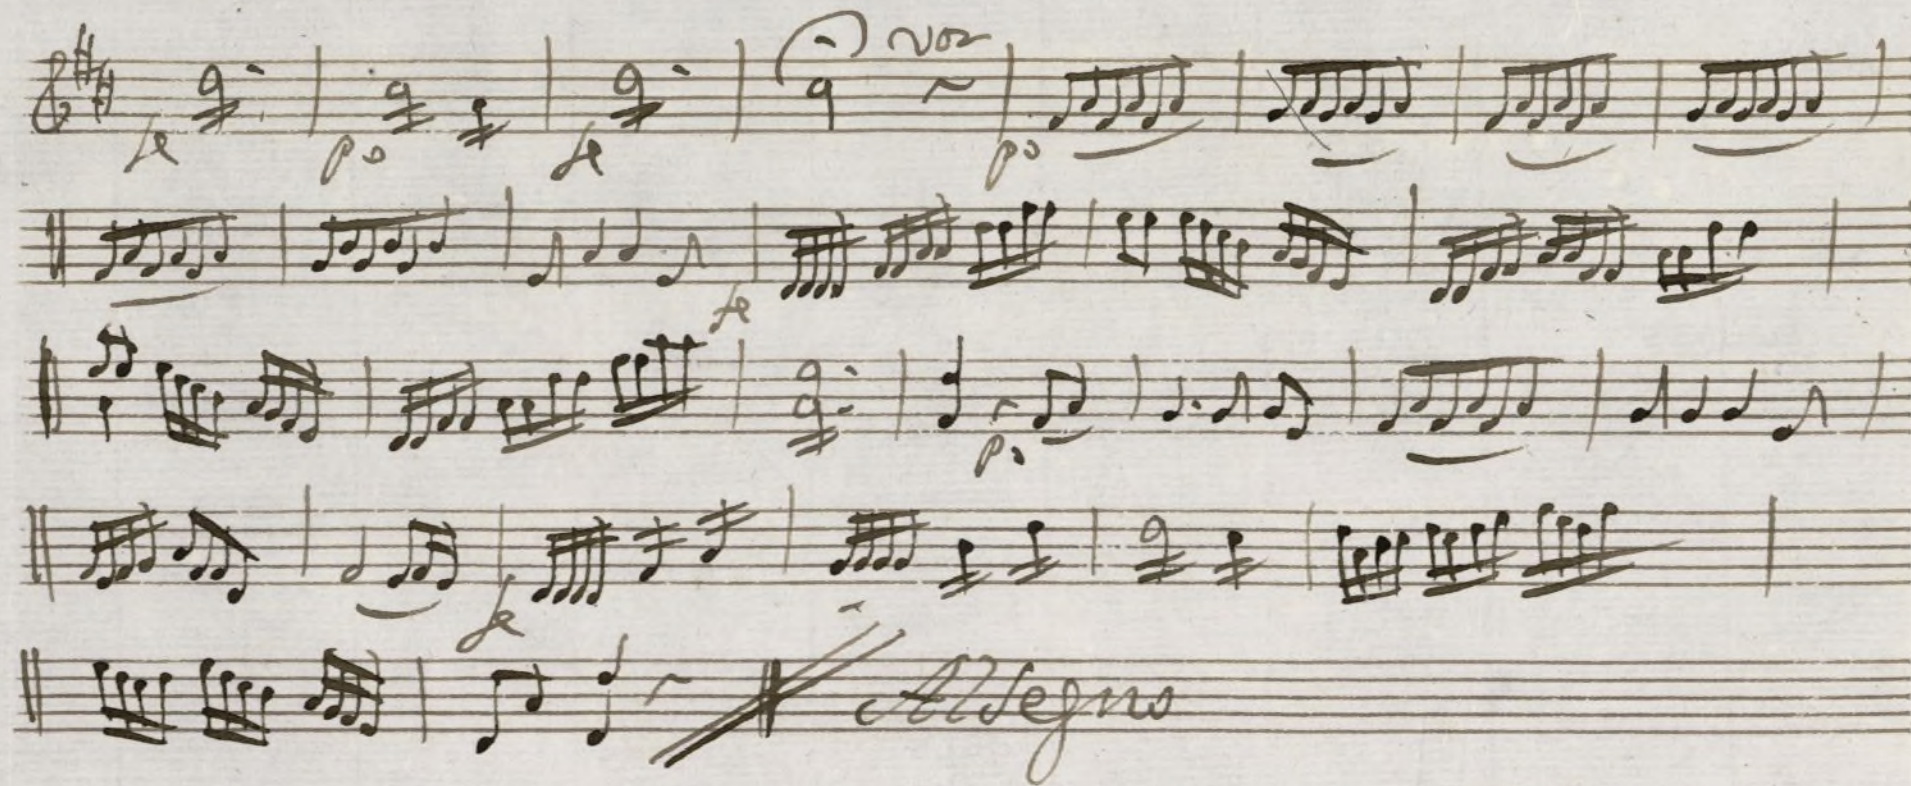 voz
fe po fe po
fe
po
fe
Al Segno